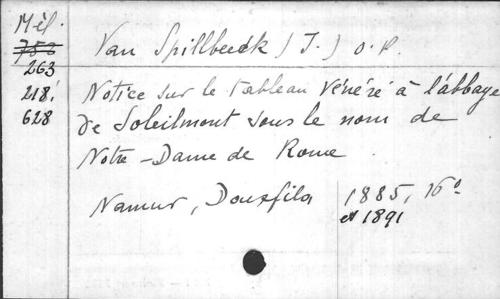 Mél.
753
263
218'
628
Van Spillbeeck (J.) o.p.
Notice sur le tableau vénéré à l'abbaye
de Soleilmont sous le nom de
Notre-Dame de Rome.
Namur, Douxfils
1885, 16°
et 1891